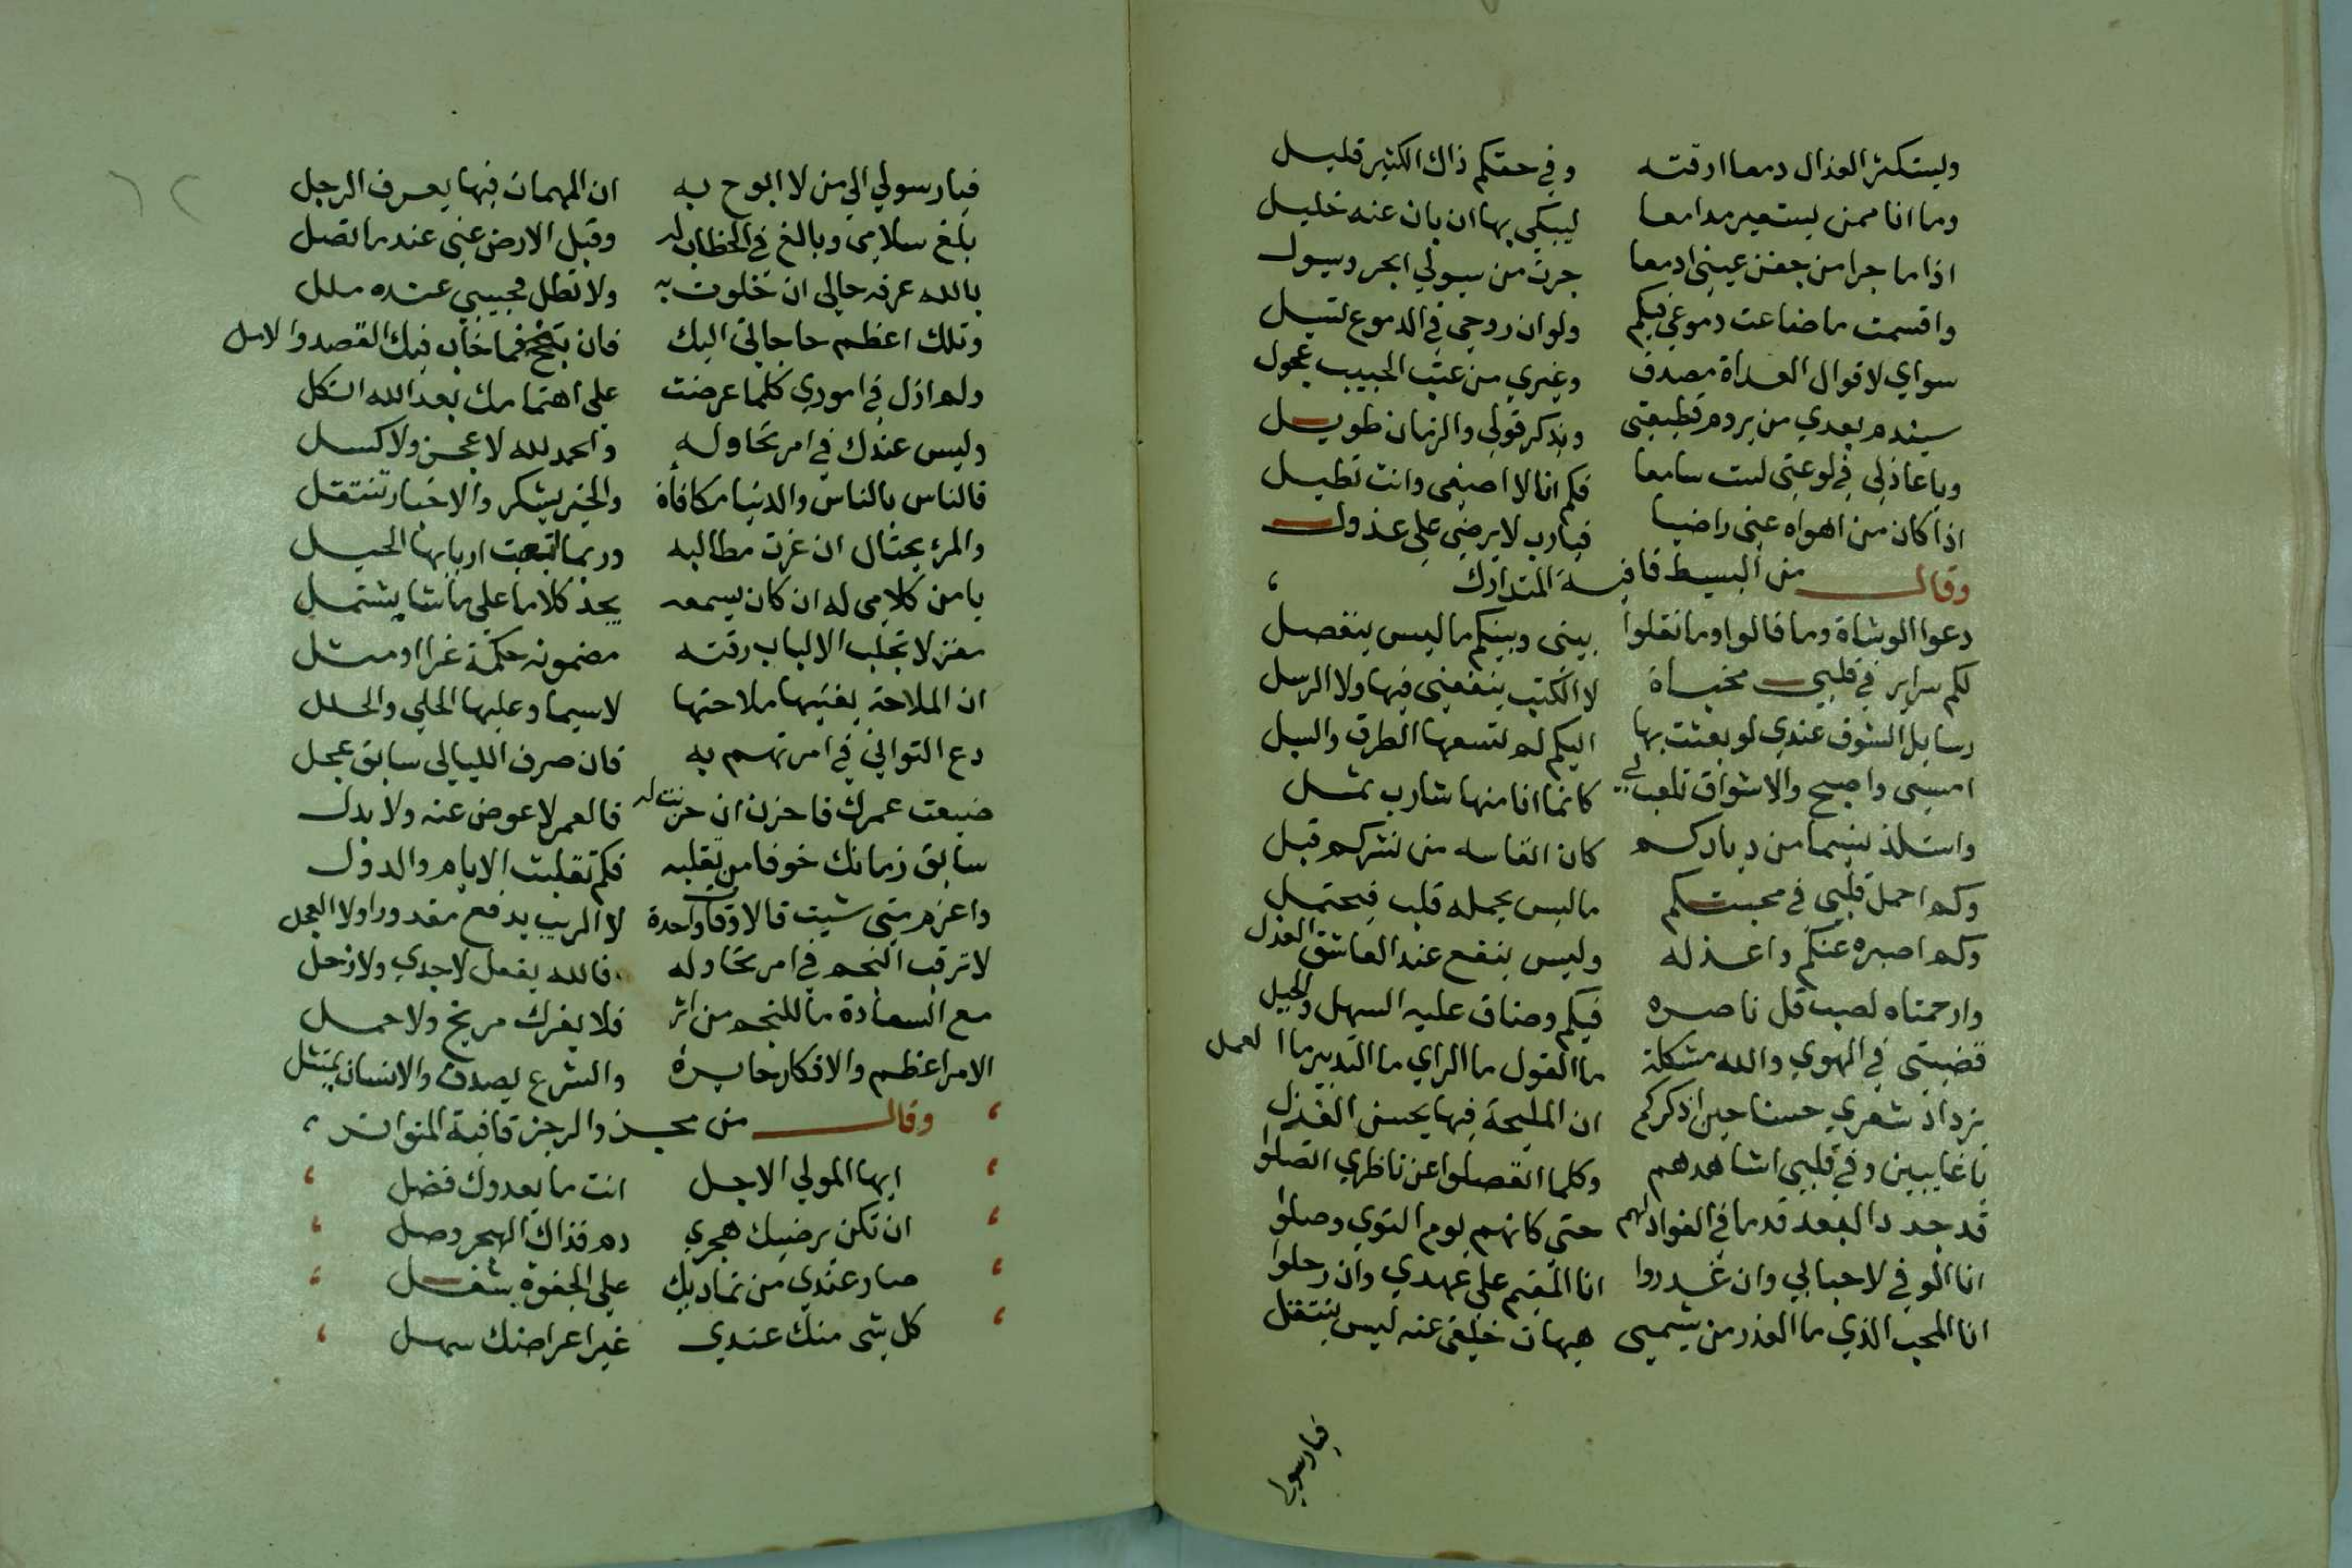 وليستكثر العذال دمعا ارقته وفي حقكم ذاك الكثير قليل
وما انا ممن يستعير مدامعا ليبكي بها ان بان عنه خليل
اذا ما جرا من جفن عيني ادمعا جرت من سيولي ابحر وسيول
واقسمت ما ضاعت دموعي فيكم ولو ان روحي في الدموع تسيل
سواي لاقوال العداة مصدق وغيري من عتب الحبيب عجول
سيندم بعدي من يروم قطيعتي ويذكر قولي والزمان طويل
ويا عاذلي في لوعتي لست سامعا فكم انا لا اصغي وانت تطيل
اذا كان من اهواه عني راضيا فيارب لا يرضي علي عذول
وقال من البسيط قافية المتدارك
دعوا الوشاة وما قالوا وما نقلوا بيني وبينكم ما ليس ينفصل
لكم سراير في قلبي مخباة لا الكتب ينفعني فيها ولا الرسل
رسايل الشوق عندي لو بعثت بها اليكم لم تسعها الطرق والسبل
امسي واصبح والاشواق تلعب بي كانما انا منها شارب ثمل
واستلذ نسيما من دياركم كان انفاسه من نشركم قبل
وكم احمل قلبي في محبتكم ما ليس يحمله قلب فيحتمل
وكم اصبره عنكم واعذله وليس ينفع عند العاشق العذل
وارحمتاه لصب قل ناصره فيكم وضاق عليه السهل والجبل
قضيتي في الهوي والله مشكلة ما القول ما الراي ما التدبير ما العمل
يزداد شعري حسنا حين اذكركم ان المليحة فيها يحسن الغزل
يا غايبين وفي قلبي اشاهدهم وكلما انفصلوا عن ناظري اتصلوا
قد جدد البعد قدما في الفواد لهم حتي كانهم يوم النوي وصلوا
انا الوفي لاحبابي وان غدروا انا المقيم علي عهدي وان رحلوا
انا المحب الذي ما الغدر من شيمي هيهات خلقي عنه ليس ينتقل
فيارسولي
فيا رسولي الي من لا ابوح به ان المهمات فيها يعرف الرجل
بلغ سلامي وبالغ في الخطاب له وقبل الارض عني عند ما تصل
بالله عرفه حالي ان خلوت به ولا تطل فحبيبي عنده ملل
وتلك اعظم حاجاتي اليك فان تنجح فما خاب فيك القصد والامل
ولم ازل في اموري كلما عرضت علي اهتمامك بعد الله اتكل
وليس عندك في امر تحاوله والحمد لله لا عجز ولا كسل
فالناس بالناس والدنيا مكافاة والخير يشكر والاخبار تنتقل
والمرء يحتال ان عزت مطالبه وربما نفعت اربابها الحيل
يا من كلامي له ان كان يسمعه يجد كلاما علي ما شا يشتمل
مغزلا تجلب الالباب رقته مضمونه حكمة غرا او مثل
ان الملاحة يغنيها ملاحتها لاسيما وعليها الحلي والحلل
دع التواني في امر تهم به فان صرف الليالي سابق عجل
ضيعت عمرك فاحزن ان حزنت له فالعمر لا عوض عنه ولا بدل
سابق زمانك خوفا من تقلبه فكم تقلبت الايام والدول
واعزم متي شيت فالاوقات واحدة لا الريب يدفع مقدورا ولا العجل
لا ترقب النجم في امر تحاوله فالله يفعل لا جدي ولا زحل
مع السعادة ما للنجم من اثر فلا يغرك مريخ ولا حمل
الامر اعظم والافكار حايرة والشرع يصدق والانسان يمتثل
وقال من مجذو الرجز قافية المتواتر
ايها المولي الاجل انت ما يعدوك فضل
ان تكن يرضيك هجري دم فذاك الهجر وصل
صار عندي من تماديك علي الجفوة شغل
كل شي منك عندي غير اعراضك سهل